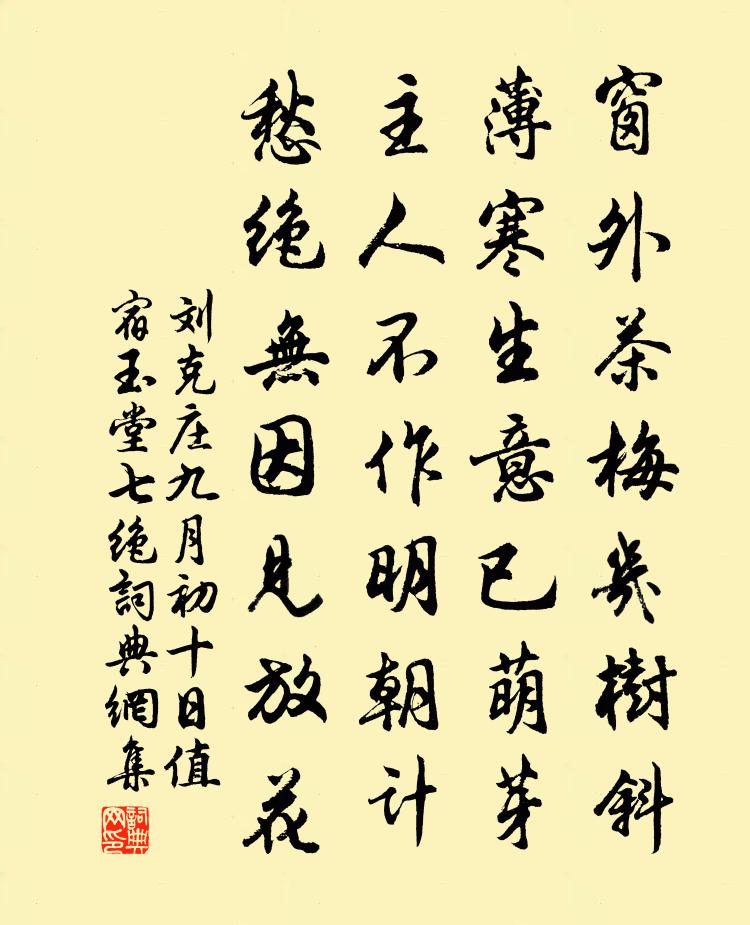 窗外茶梅幾樹斜
薄寒生意已萌芽
主人不作明朝計
愁絶無因見放花
刘克庄九月初十日值
宿玉堂七絶詞典網集
詞典网印